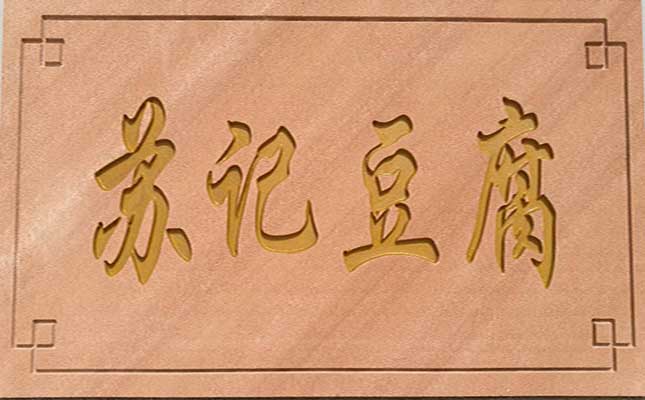 苏记豆腐